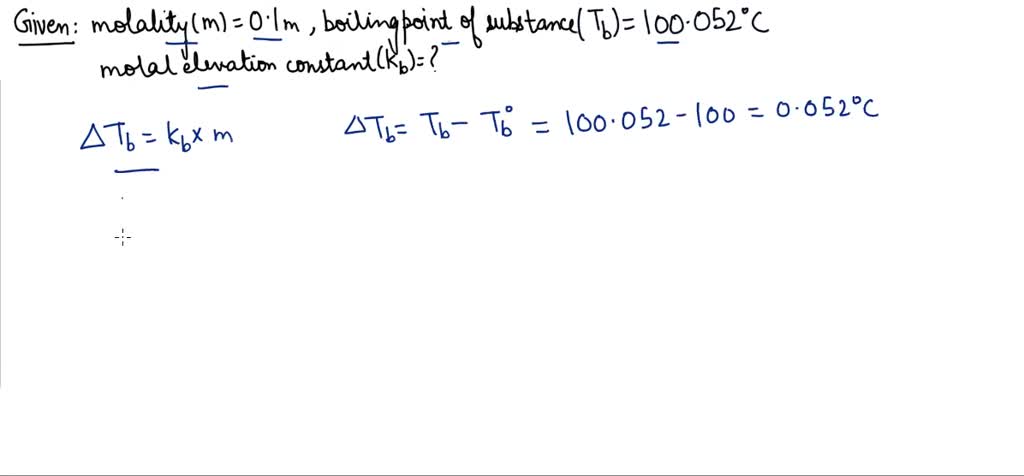 Given: molality(m)=0.1m, boiling point of substance(Tb)=100.052°C
molal elevation constant(Kb)=?
ΔTb = Kb × m
ΔTb = Tb − Tb° = 100.052 − 100 = 0.052°C